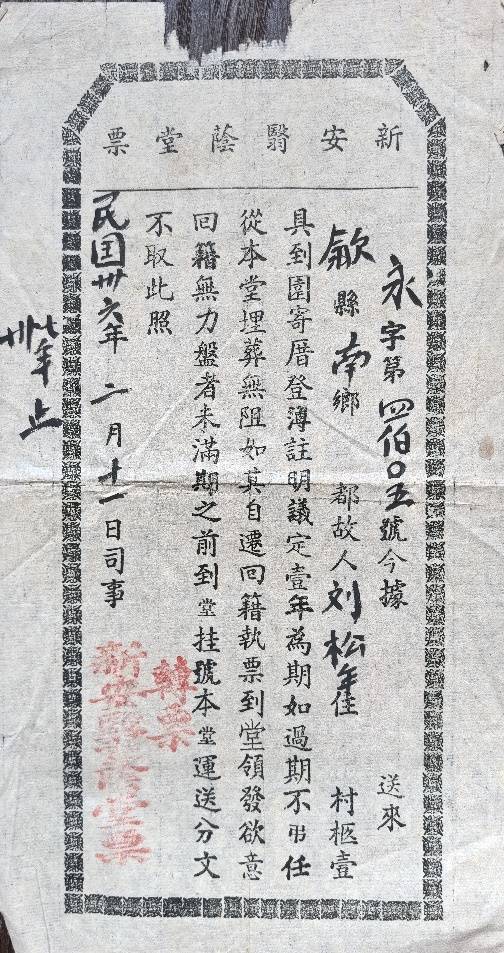 新安翳蔭堂票
永字第四佰〇五號今據 送來
歙縣南鄉 都故人刘松年住 村柩壹
具到園寄厝登薄註明議定壹年為期如過期不弔任
從本堂埋葬無阻如其自遷回籍執票到堂領發欲意
回籍無力盤者未滿期之前到堂挂號本堂運送分文
不取此照
轉票
民国卅六年二月十一日司事
新安翳蔭堂票
卅七年止